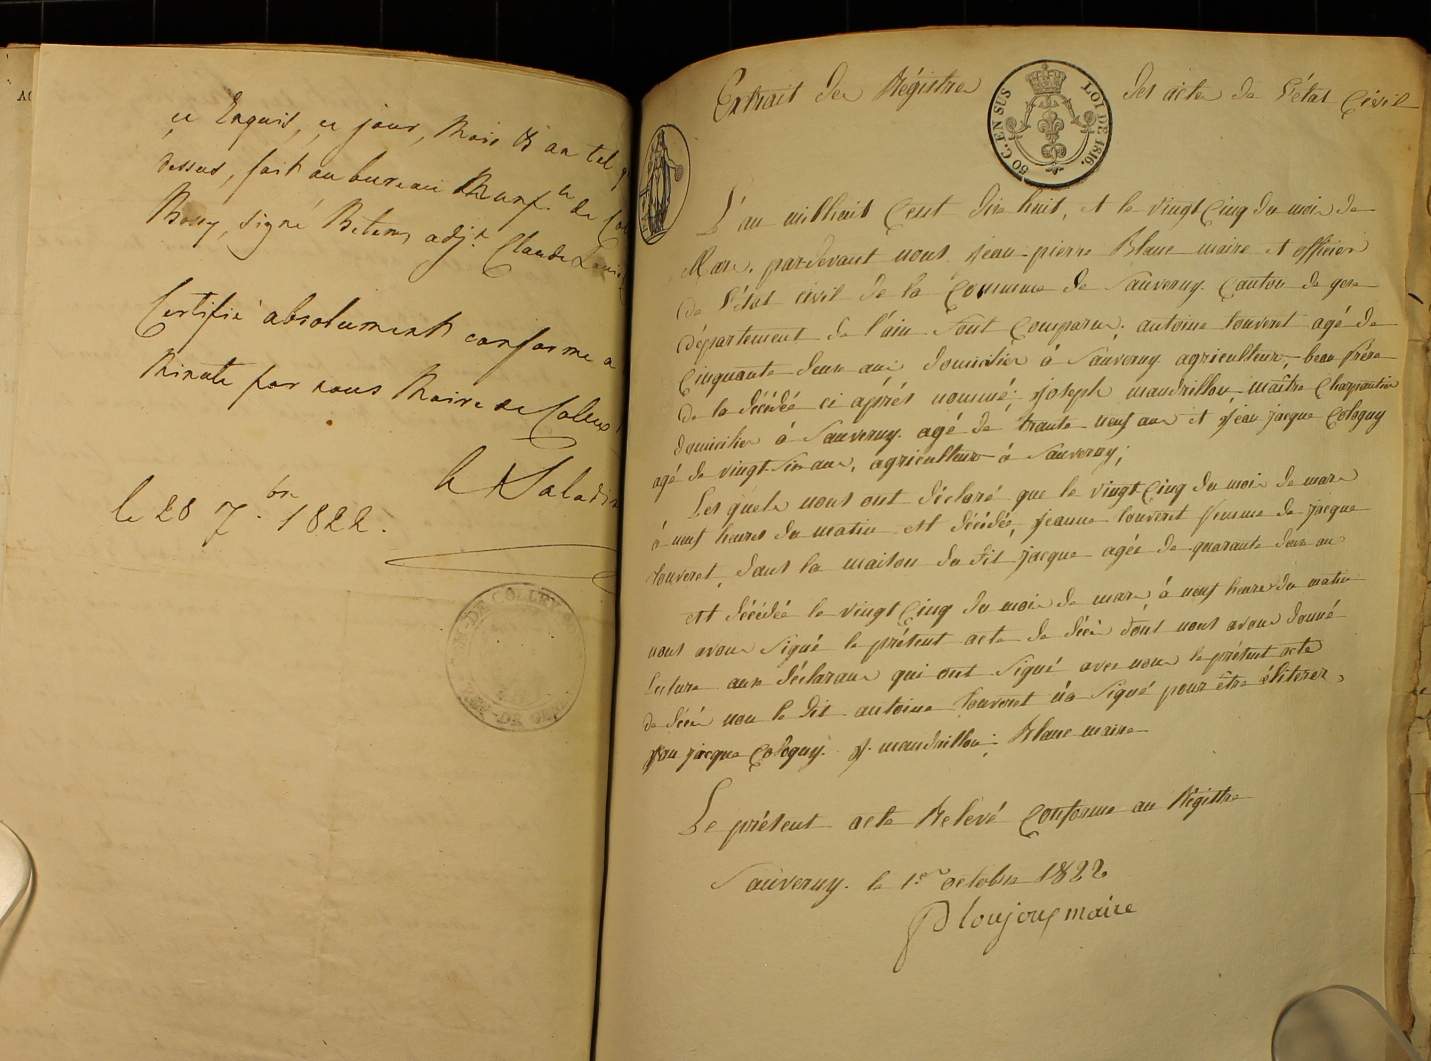 ce Enquis, ce jour, Mois & an tel q
dessus, fait au bureau Munic. de Col
Bossy, signé adj.t Claude Louis
Certifié absolument conforme a
Minute par nous Maire de Colex
le Saladin
le 28 7.bre 1822.
DE COLLEX
Extrait des Régistre des acte de L'état Civil
50 C. EN SUS LOI DE 1816.
L'an mil huit Cent dix huit, et le vingt Cinq du mois de
Mars. pardevant nous Jean pierre Blanc maire et officier
de L'état civil de la Commune de Sauverny Canton de gex
département de l'ain sont Comparus. antoine touveret agé de
Cinquante deux ans domicilier à Sauverny agriculteur, beau frère
de la décédée ci après nommé; Joseph mandrillon, maître Charpantier
domicilier à Sauverny. agé de trante neuf ans et Jean jacque Cologny
agé de vingt six ans, agriculteur à Sauverny;
Les quels nous ont déclaré que le vingt Cinq du mois de mars
à neuf heures du matin est décédée, Jeanne touveret femme de jacque
touveret, dans la maison du dit jacque agée de quarante deux ans
est décédée le vingt Cinq du mois de mars, à neuf heures du matin
nous avons Signé le présent acte de décès dont nous avons donné
Lecture aux déclarans qui ont Signé avec nous le présent acte
de décès non le dit antoine touveret n'a Signé pour être éliterez,
Jean jacque Cologny. J. mandrillon; Blanc maire
Le présent acte Relevé Conforme au Régistre
Sauverny. le 1.er octobre 1822
maire